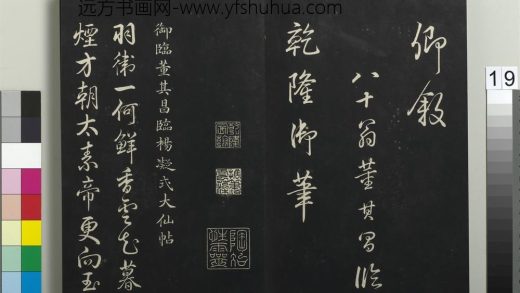 远方书画网-www.yfshuhua.com
卿叙
八十翁董其昌临
乾隆御筆
御臨董其昌臨楊凝式大仙帖
羽衛一何鮮香雲起暮
煙方朝太素帝更向玉
19